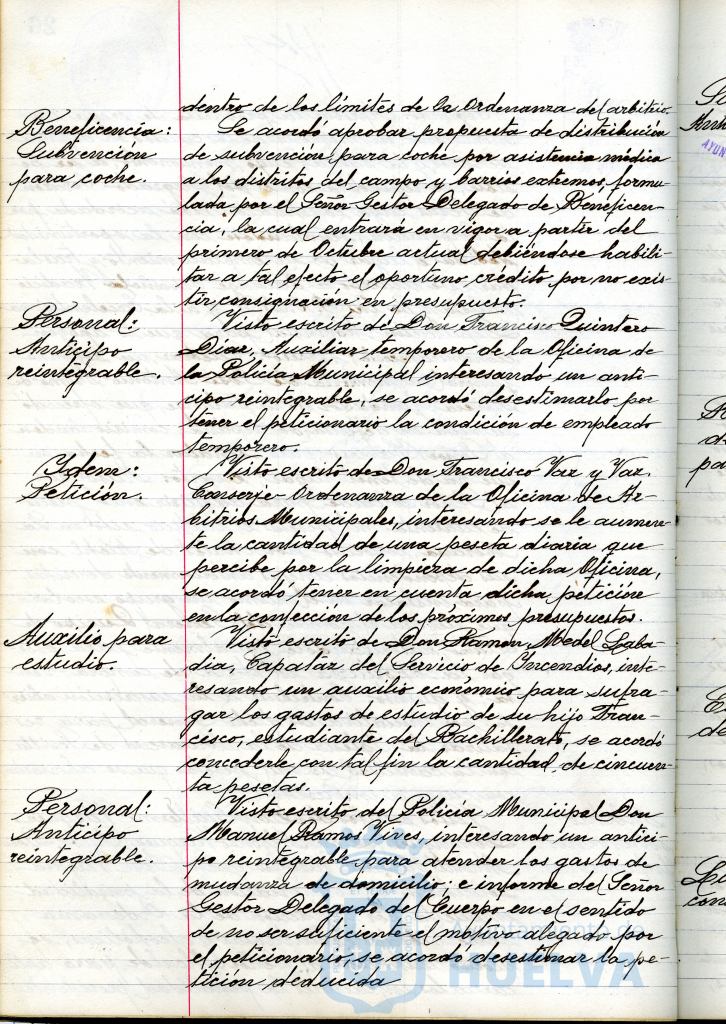 dentro de los límites de la Ordenanza del arbitrio.
Beneficencia:
Subvención
para coche.
Se acordó aprobar propuesta de distribución
de subvención para coche por asistencia médica
a los distritos del campo y barrios extremos, formu-
lada por el Señor Gestor Delegado de Beneficen-
cia, la cual entrará en vigor a partir del
primero de Octubre actual debiéndose habili-
tar a tal efecto el oportuno crédito por no exis-
tir consignación en presupuesto.
Personal:
Anticipo
reintegrable.
Visto escrito de Don Francisco Quintero
Díaz, Auxiliar temporero de la Oficina de
la Policía Municipal interesando un anti-
cipo reintegrable, se acordó desestimarlo por
tener el peticionario la condición de empleado
temporero.
Idem:
Petición.
Visto escrito de Don Francisco Vaz y Vaz,
Conserje-Ordenanza de la Oficina de Ar-
bitrios Municipales, interesando se le aumen-
te la cantidad de una peseta diaria que
percibe por la limpieza de dicha Oficina,
se acordó tener en cuenta dicha petición
en la confección de los próximos presupuestos.
Auxilio para
estudio.
Visto escrito de Don Ramón Medel Laba-
dia, Capataz del Servicio de Incendios, inte-
resando un auxilio económico para sufra-
gar los gastos de estudio de su hijo Fran-
cisco, estudiante del Bachillerato, se acordó
concederle con tal fin la cantidad de cincuen-
ta pesetas.
Personal:
Anticipo
reintegrable.
Visto escrito del Policía Municipal Don
Manuel Ramos Vives, interesando un antici-
po reintegrable para atender los gastos de
mudanza de domicilio; e informe del Señor
Gestor Delegado del Cuerpo en el sentido
de no ser suficiente el motivo alegado por
el peticionario, se acordó desestimar la pe-
tición deducida
HUELVA